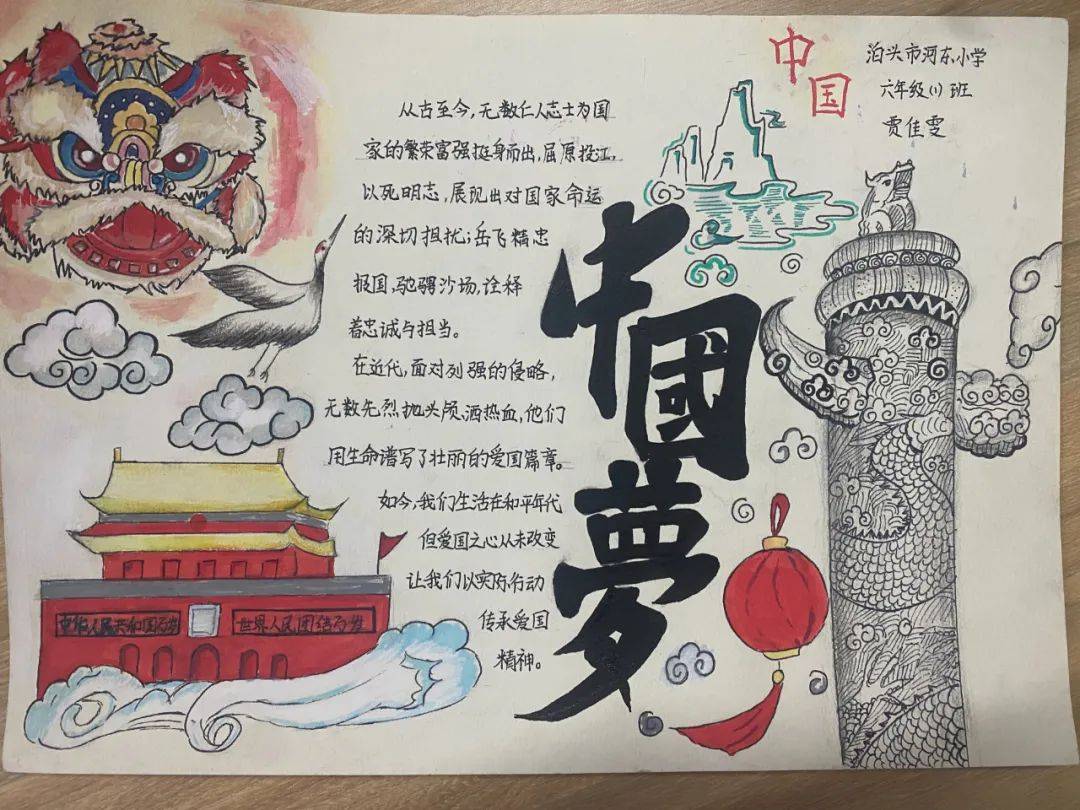 中国
泊头市河东小学
六年级(1)班
贾佳雯
从古至今,无数仁人志士为国
家的繁荣富强挺身而出,屈原投江,
以死明志,展现出对国家命运
的深切担扰;岳飞精忠
报国,驰骋沙场,诠释
着忠诚与担当。
在近代,面对列强的侵略,
无数先烈抛头颅洒热血,他们
用生命谱写了壮丽的爱国篇章。
如今,我们生活在和平年代
但爱国之心从未改变
让我们以实际行动
传承爱国
精神。
中國夢
中华人民共和国万岁
世界人民团结万岁